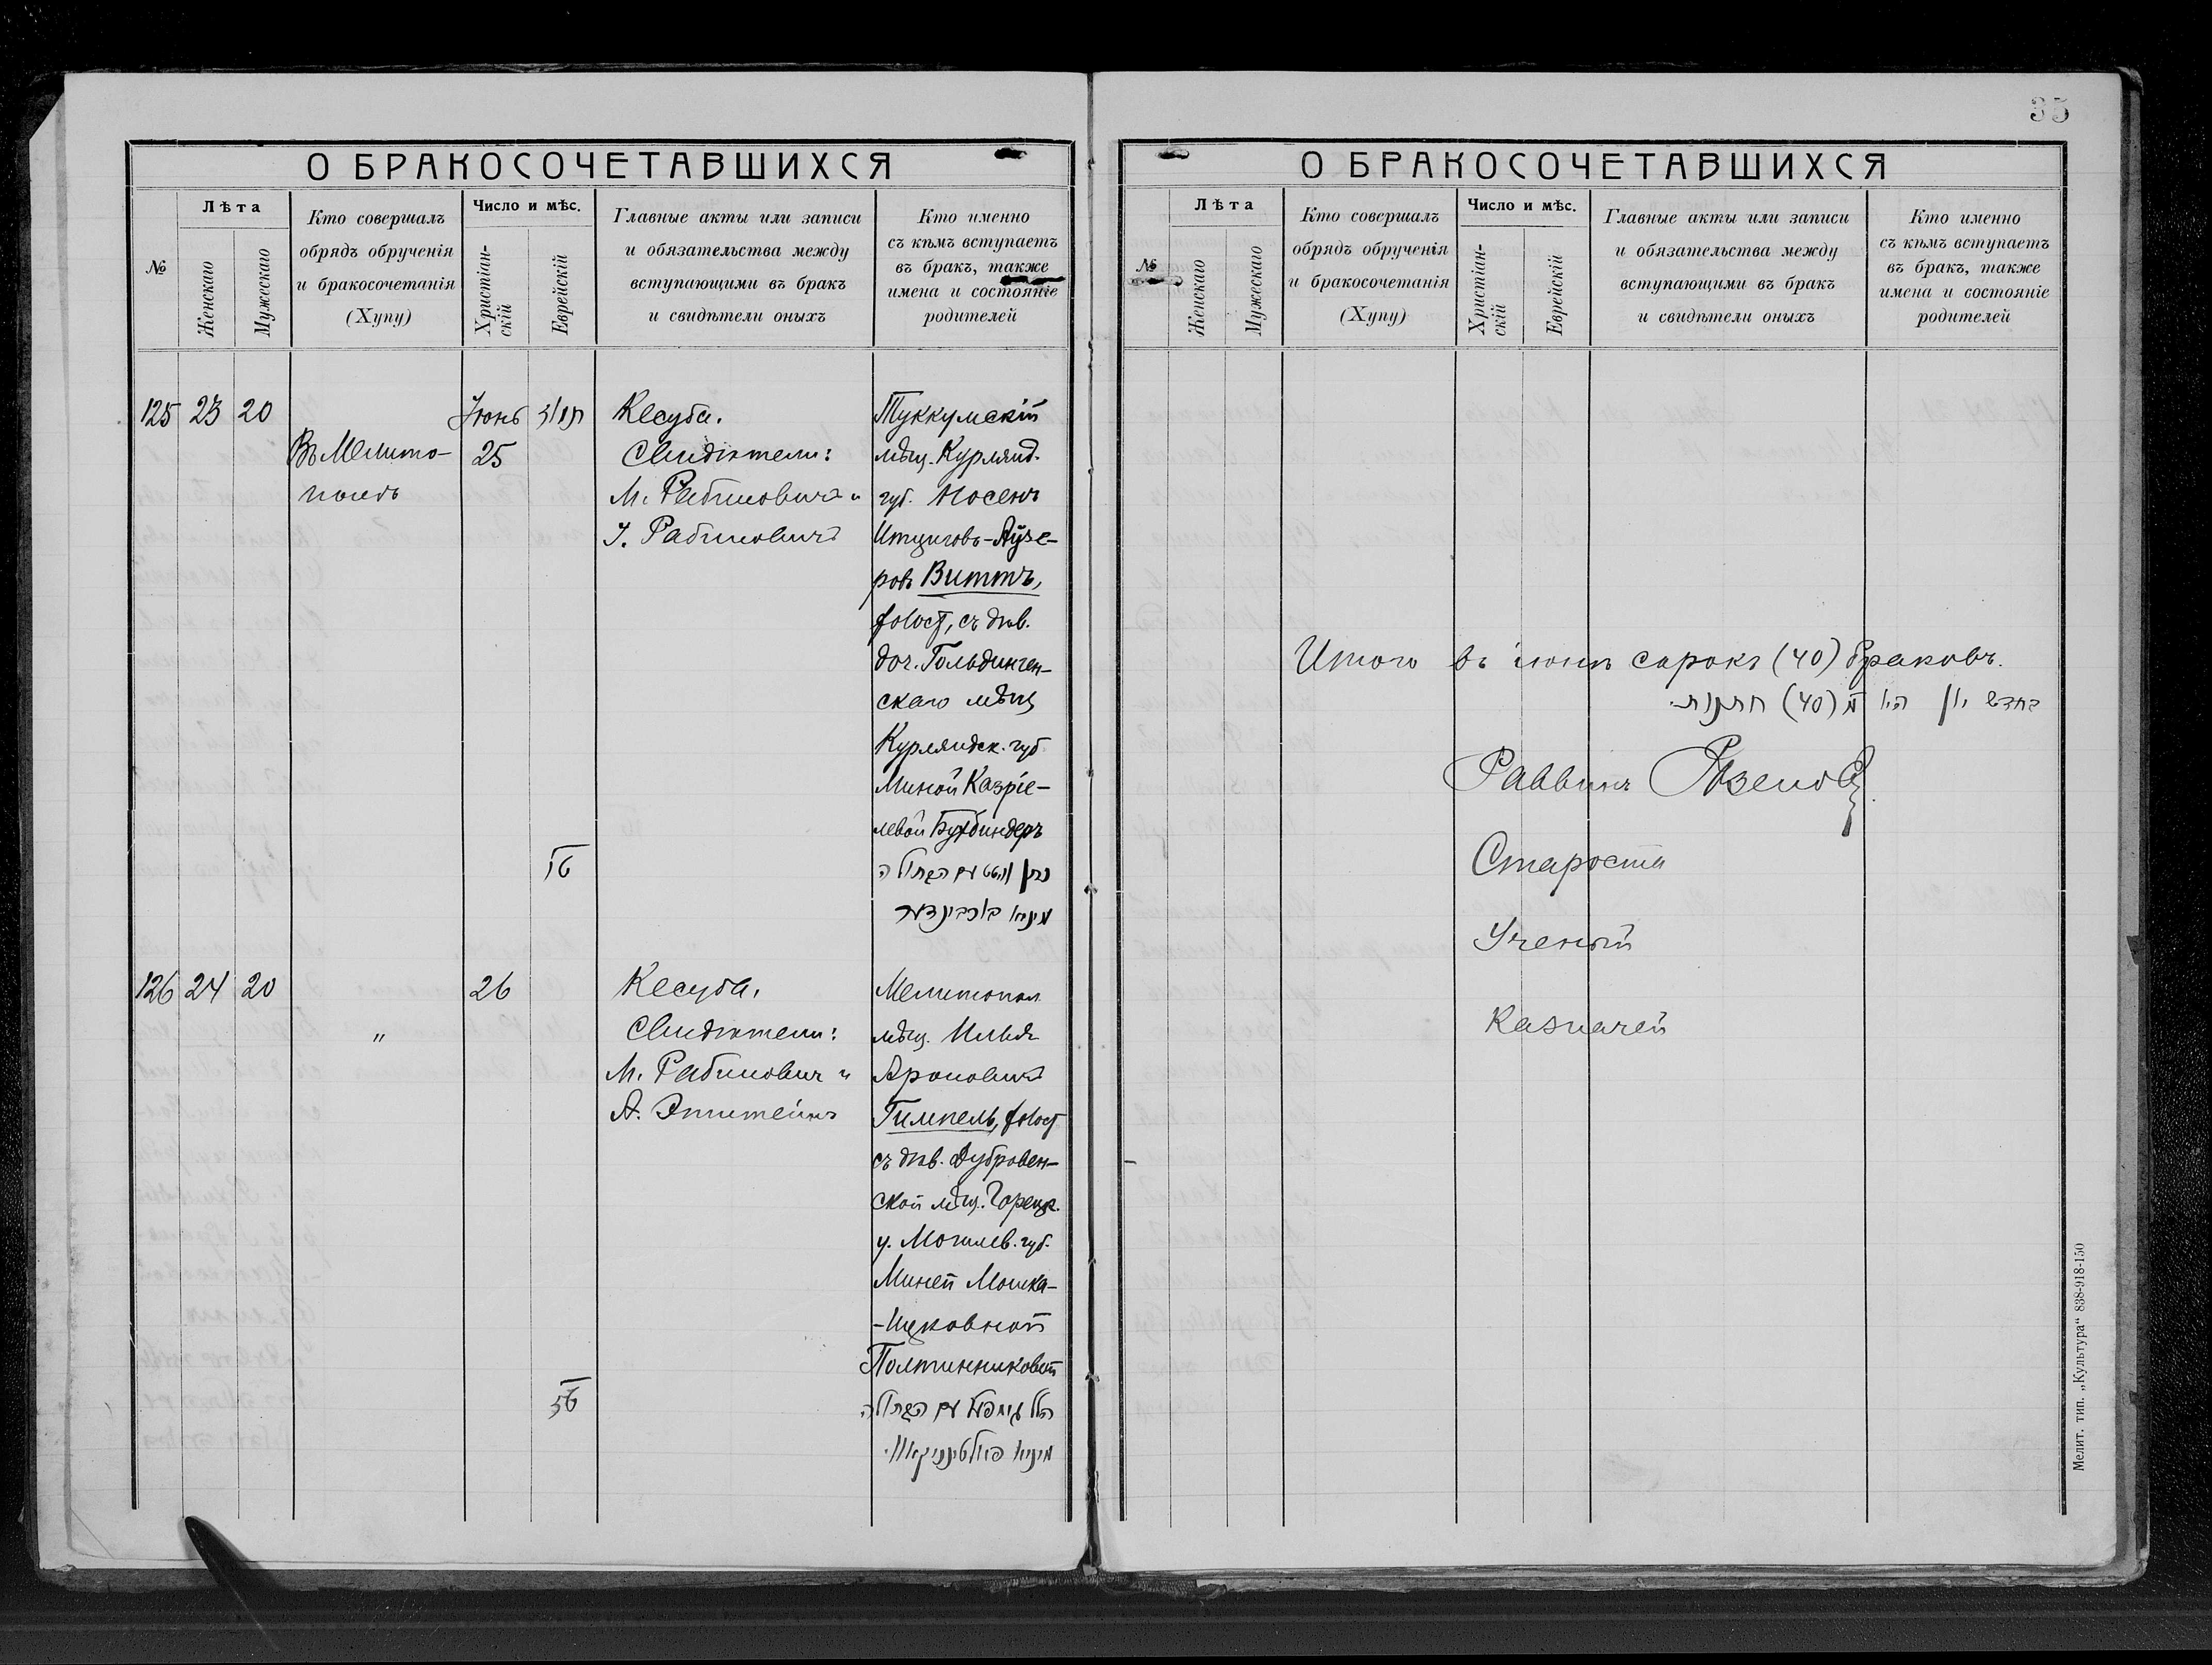 35
О БРАКОСОЧЕТАВШИХСЯ
№
Лѣта
Женскаго
Мужескаго
Кто совершалъ
обрядъ обрученія
и бракосочетанія
(Хупу)
Число и мѣс.
Христіан-
скій
Еврейскій
Главные акты или записи
и обязательства между
вступающими въ бракъ
и свидѣтели оныхъ
Кто именно
съ кѣмъ вступаетъ
въ бракъ, также
имена и состояніе
родителей
125 23 20
Въ Мелито-
полѣ
Іюнь
25
Кесуба.
Свидѣтели:
М. Рабиновичъ и
І. Рабиновичъ
Туккумскій
мѣщ. Курлянд.
губ. Носенъ
Ициговъ-Лузе-
ровъ Виттъ,
холост, съ дѣв.
доч. Гольдинген-
скаго мѣщ
Курляндск. губ
Миной Казріе-
левой Бухбиндеръ
נתן וויטט עם הבתולה
מינא בוכבינדער
126 24 20
"
26
Кесуба.
Свидѣтели:
М. Рабинович и
А. Эпштейнъ
Мелитопол
мѣщ. Илья
Ароновичъ
Гимпель, холост
съ дѣв. Дубровен-
ской мѣщ. Горецк.
у. Могилев. губ.
Миней Мошка-
-Ицковной
Полтинниковой
הלל גימפעל עם הבתולה
О БРАКОСОЧЕТАВШИХСЯ
№
Лѣта
Женскаго
Мужескаго
Кто совершалъ
обрядъ обрученія
и бракосочетанія
(Хупу)
Число и мѣс.
Христіан-
скій
Еврейскій
Главные акты или записи
и обязательства между
вступающими въ бракъ
и свидѣтели оныхъ
Кто именно
съ кѣмъ вступаетъ
въ бракъ, также
имена и состояніе
родителей
Итого въ іюнѣ сорокъ (40) браковъ.
בחדש יון היו מ (40) חתנות.
Раввинъ
Староста
Ученый
Казначей
Мелит. тип. „Культура" 838-918-150